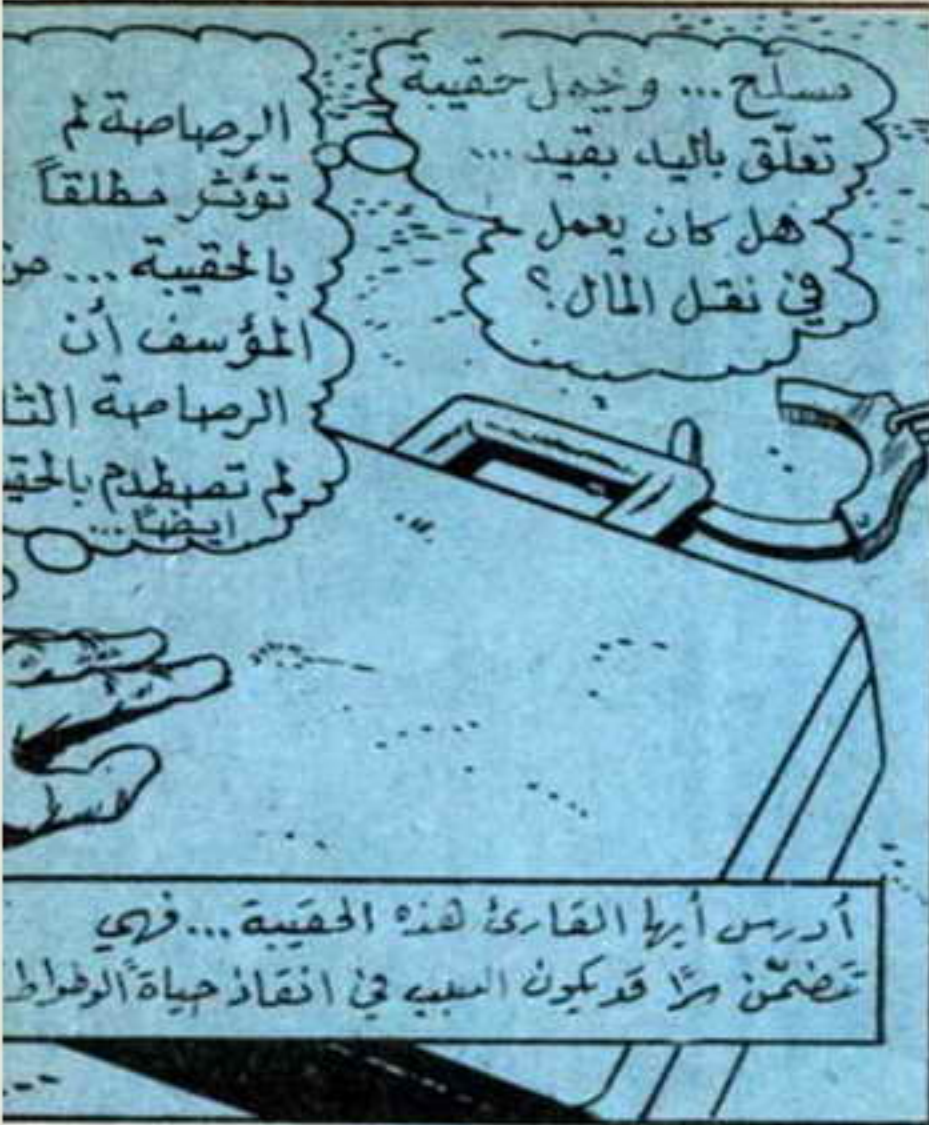 مسلّح ... و يحمل حقيبة
تعلّق باليد بقيد ...
هل كان يعمل
في نقل المال؟
الرصاصة لم
تؤثر مطلقاً
بالحقيبة ... من
المؤسف أن
الرصاصة الثا
لم تصطدم بالحقي
ايضاً...
أدرس أيها القارئ هذه الحقيبة ... فهي
تتضمّن سرًّا قد يكون السبب في انقاذ حياة الوطواط